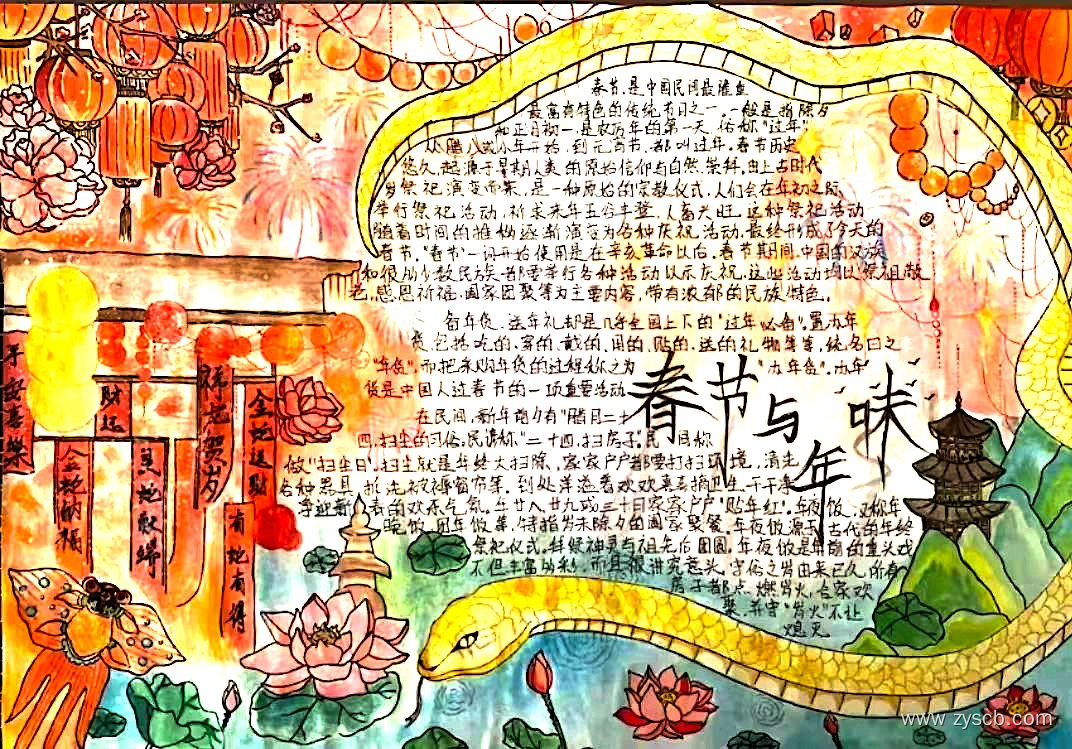 春节,是中国民间最隆重
最富有特色的传统节日之一,一般是指除夕
和正月初一,是农历年的第一天,俗称"过年"
从腊八或小年开始,到元宵节,都叫过年,春节历史
悠久,起源于早期人类的原始信仰与自然崇拜,由上古时代
岁祭祀演变而来,是一种原始的宗教仪式,人们会在年初之际
举行祭祀活动,祈求来年五谷丰登,人畜兴旺,这种祭祀活动
随着时间的推移逐渐演变为各种庆祝活动,最终形成了今天的
春节,"春节"一词开始使用是在辛亥革命以后,春节期间,中国的汉族
和很多少数民族都要举行各种活动以示庆祝,这些活动均以祭祖敬
老,感恩祈福,阖家团聚等为主要内容,带有浓郁的民族特色。
备年货、送年礼却是几乎全国上下的"过年"必备"。置办年
货,包括吃的、穿的、戴的、用的、贴的、送的礼物等等,统名曰之
"年货",而把采购年货的过程称之为"办年货"。办年
货是中国人过春节的一项重要活动
在民间,新年前夕有"腊月二十
四,扫尘的习俗,民谚称"二十四,扫房子",民间称
做"扫尘日",扫尘就是年终大扫除,家家户户都要打扫环境,清洗
各种器具,拆洗被褥窗帘等,到处洋溢着欢欢喜喜搞卫生,干干净
净迎新春的欢乐气氛。年廿八廿九或三十日家家户户"贴年红",年夜饭,又称年
晚饭、团年饭等,特指岁末除夕的阖家聚餐,年夜饭源于古代的年终
祭祀仪式,拜祭神灵与祖先后团圆,年夜饭是年前的重头戏
不但丰富多彩,而且很讲究意头,守俗之岁由来已久,所有
房子都点燃岁火,合家欢
聚,并守"岁火"不让
熄灭
春节与年味
平安喜樂
财运
金蛇纳福
灵蛇献瑞
祥蛇贺岁
金蛇送财
有蛇有得
www.zyscb.com